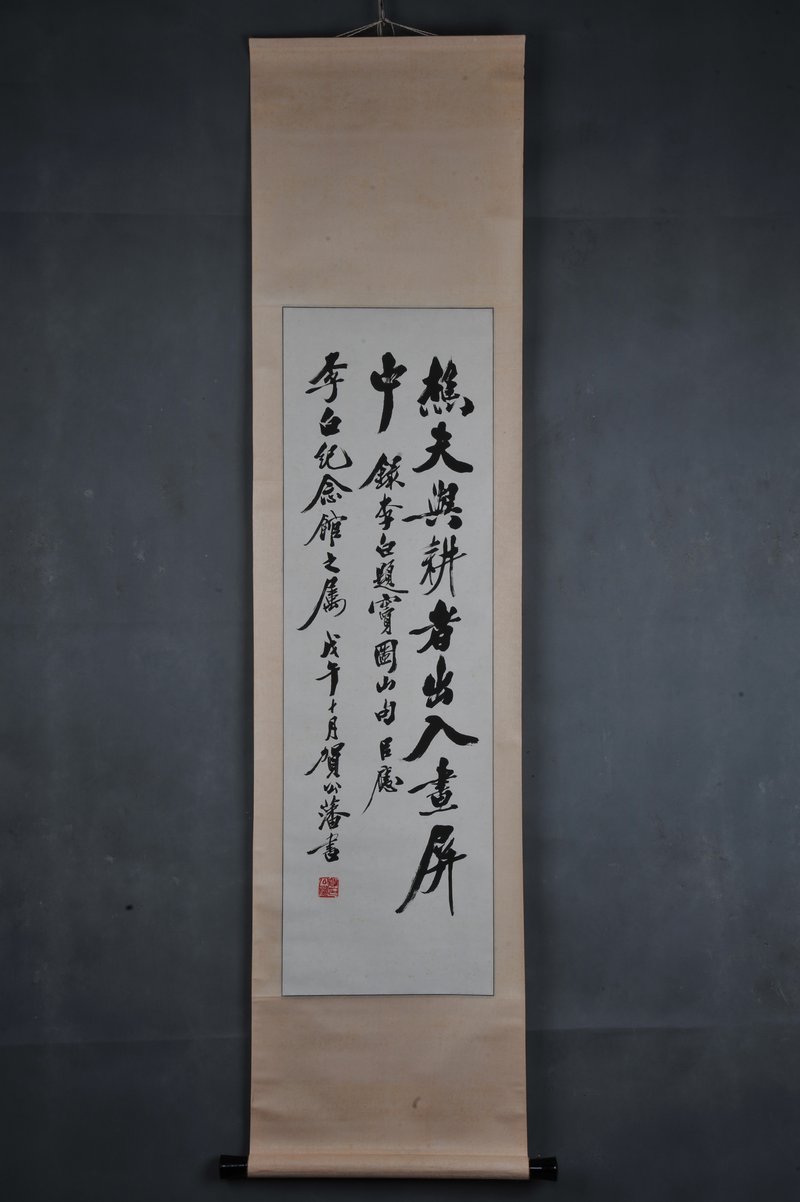 樵夫與耕者出入畫屏
中 錄李白題竇圌山句以應
李白紀念館之属 戊午十月賀公藩書